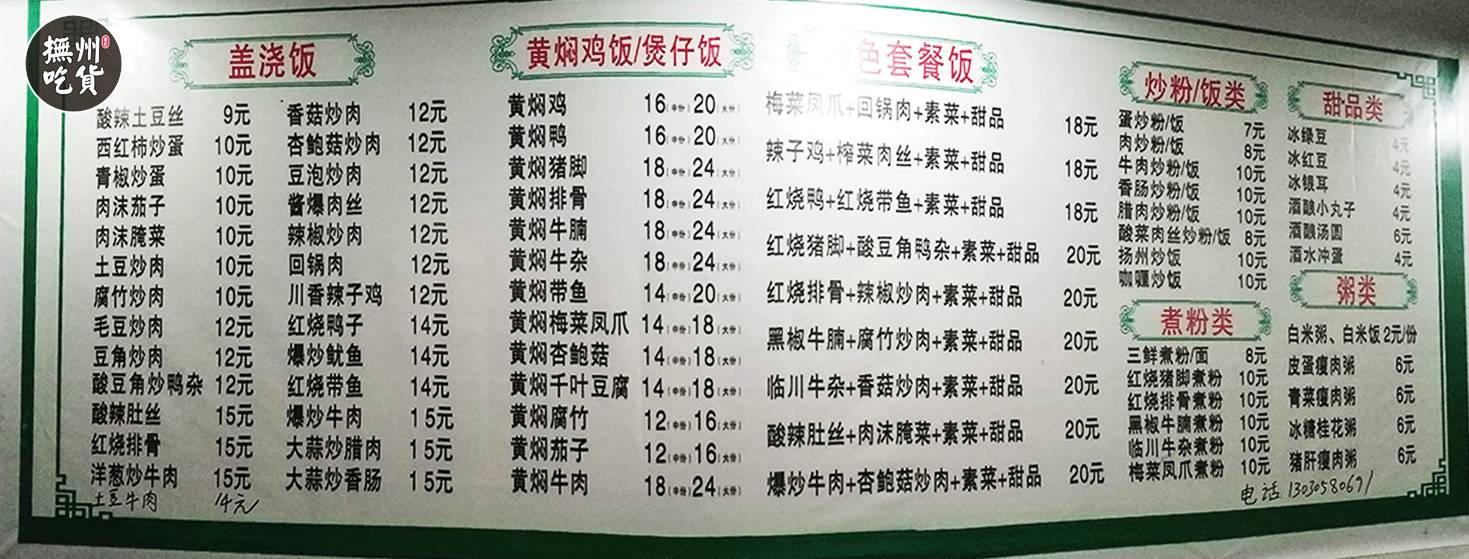 撫州
吃貨
盖浇饭
酸辣土豆丝 9元
西红柿炒蛋 10元
青椒炒蛋 10元
肉沫茄子 10元
肉沫腌菜 10元
土豆炒肉 10元
腐竹炒肉 10元
毛豆炒肉 12元
豆角炒肉 12元
酸豆角炒鸭杂 12元
酸辣肚丝 15元
红烧排骨 15元
洋葱炒牛肉 15元
土豆牛肉 14元
香菇炒肉 12元
杏鲍菇炒肉 12元
豆泡炒肉 12元
酱爆肉丝 12元
辣椒炒肉 12元
回锅肉 12元
川香辣子鸡 12元
红烧鸭子 14元
爆炒鱿鱼 14元
红烧带鱼 14元
爆炒牛肉 15元
大蒜炒腊肉 15元
大蒜炒香肠 15元
黄焖鸡饭/煲仔饭
黄焖鸡 16(中份)20(大份)
黄焖鸭 16(中份)20(大份)
黄焖猪脚 18(中份)24(大份)
黄焖排骨 18(中份)24(大份)
黄焖牛腩 18(中份)24(大份)
黄焖牛杂 18(中份)24(大份)
黄焖带鱼 14(中份)20(大份)
黄焖梅菜凤爪 14(中份)18(大份)
黄焖杏鲍菇 14(中份)18(大份)
黄焖千叶豆腐 14(中份)18(大份)
黄焖腐竹 12(中份)16(大份)
黄焖茄子 12(中份)16(大份)
黄焖牛肉 18(中份)24(大份)
色套餐饭
梅菜凤爪+回锅肉+素菜+甜品 18元
辣子鸡+榨菜肉丝+素菜+甜品 18元
红烧鸭+红烧带鱼+素菜+甜品 18元
红烧猪脚+酸豆角鸭杂+素菜+甜品 20元
红烧排骨+辣椒炒肉+素菜+甜品 20元
黑椒牛腩+腐竹炒肉+素菜+甜品 20元
临川牛杂+香菇炒肉+素菜+甜品 20元
酸辣肚丝+肉沫腌菜+素菜+甜品 20元
爆炒牛肉+杏鲍菇炒肉+素菜+甜品 20元
炒粉/饭类
蛋炒粉/饭 7元
肉炒粉/饭 8元
牛肉炒粉/饭 10元
香肠炒粉/饭 10元
腊肉炒粉/饭 10元
酸菜肉丝炒粉/饭 8元
扬州炒饭 10元
咖喱炒饭 10元
煮粉类
三鲜煮粉/面 8元
红烧猪脚煮粉 10元
红烧排骨煮粉 10元
黑椒牛腩煮粉 10元
临川牛杂煮粉 10元
梅菜凤爪煮粉 10元
甜品类
冰绿豆 4元
冰红豆 4元
冰银耳 4元
酒酿小丸子 4元
酒酿汤圆 6元
酒水冲蛋 4元
粥类
白米粥、白米饭 2元/份
皮蛋瘦肉粥 6元
青菜瘦肉粥 6元
冰糖桂花粥 6元
猪肝瘦肉粥 6元
电话 13030580691